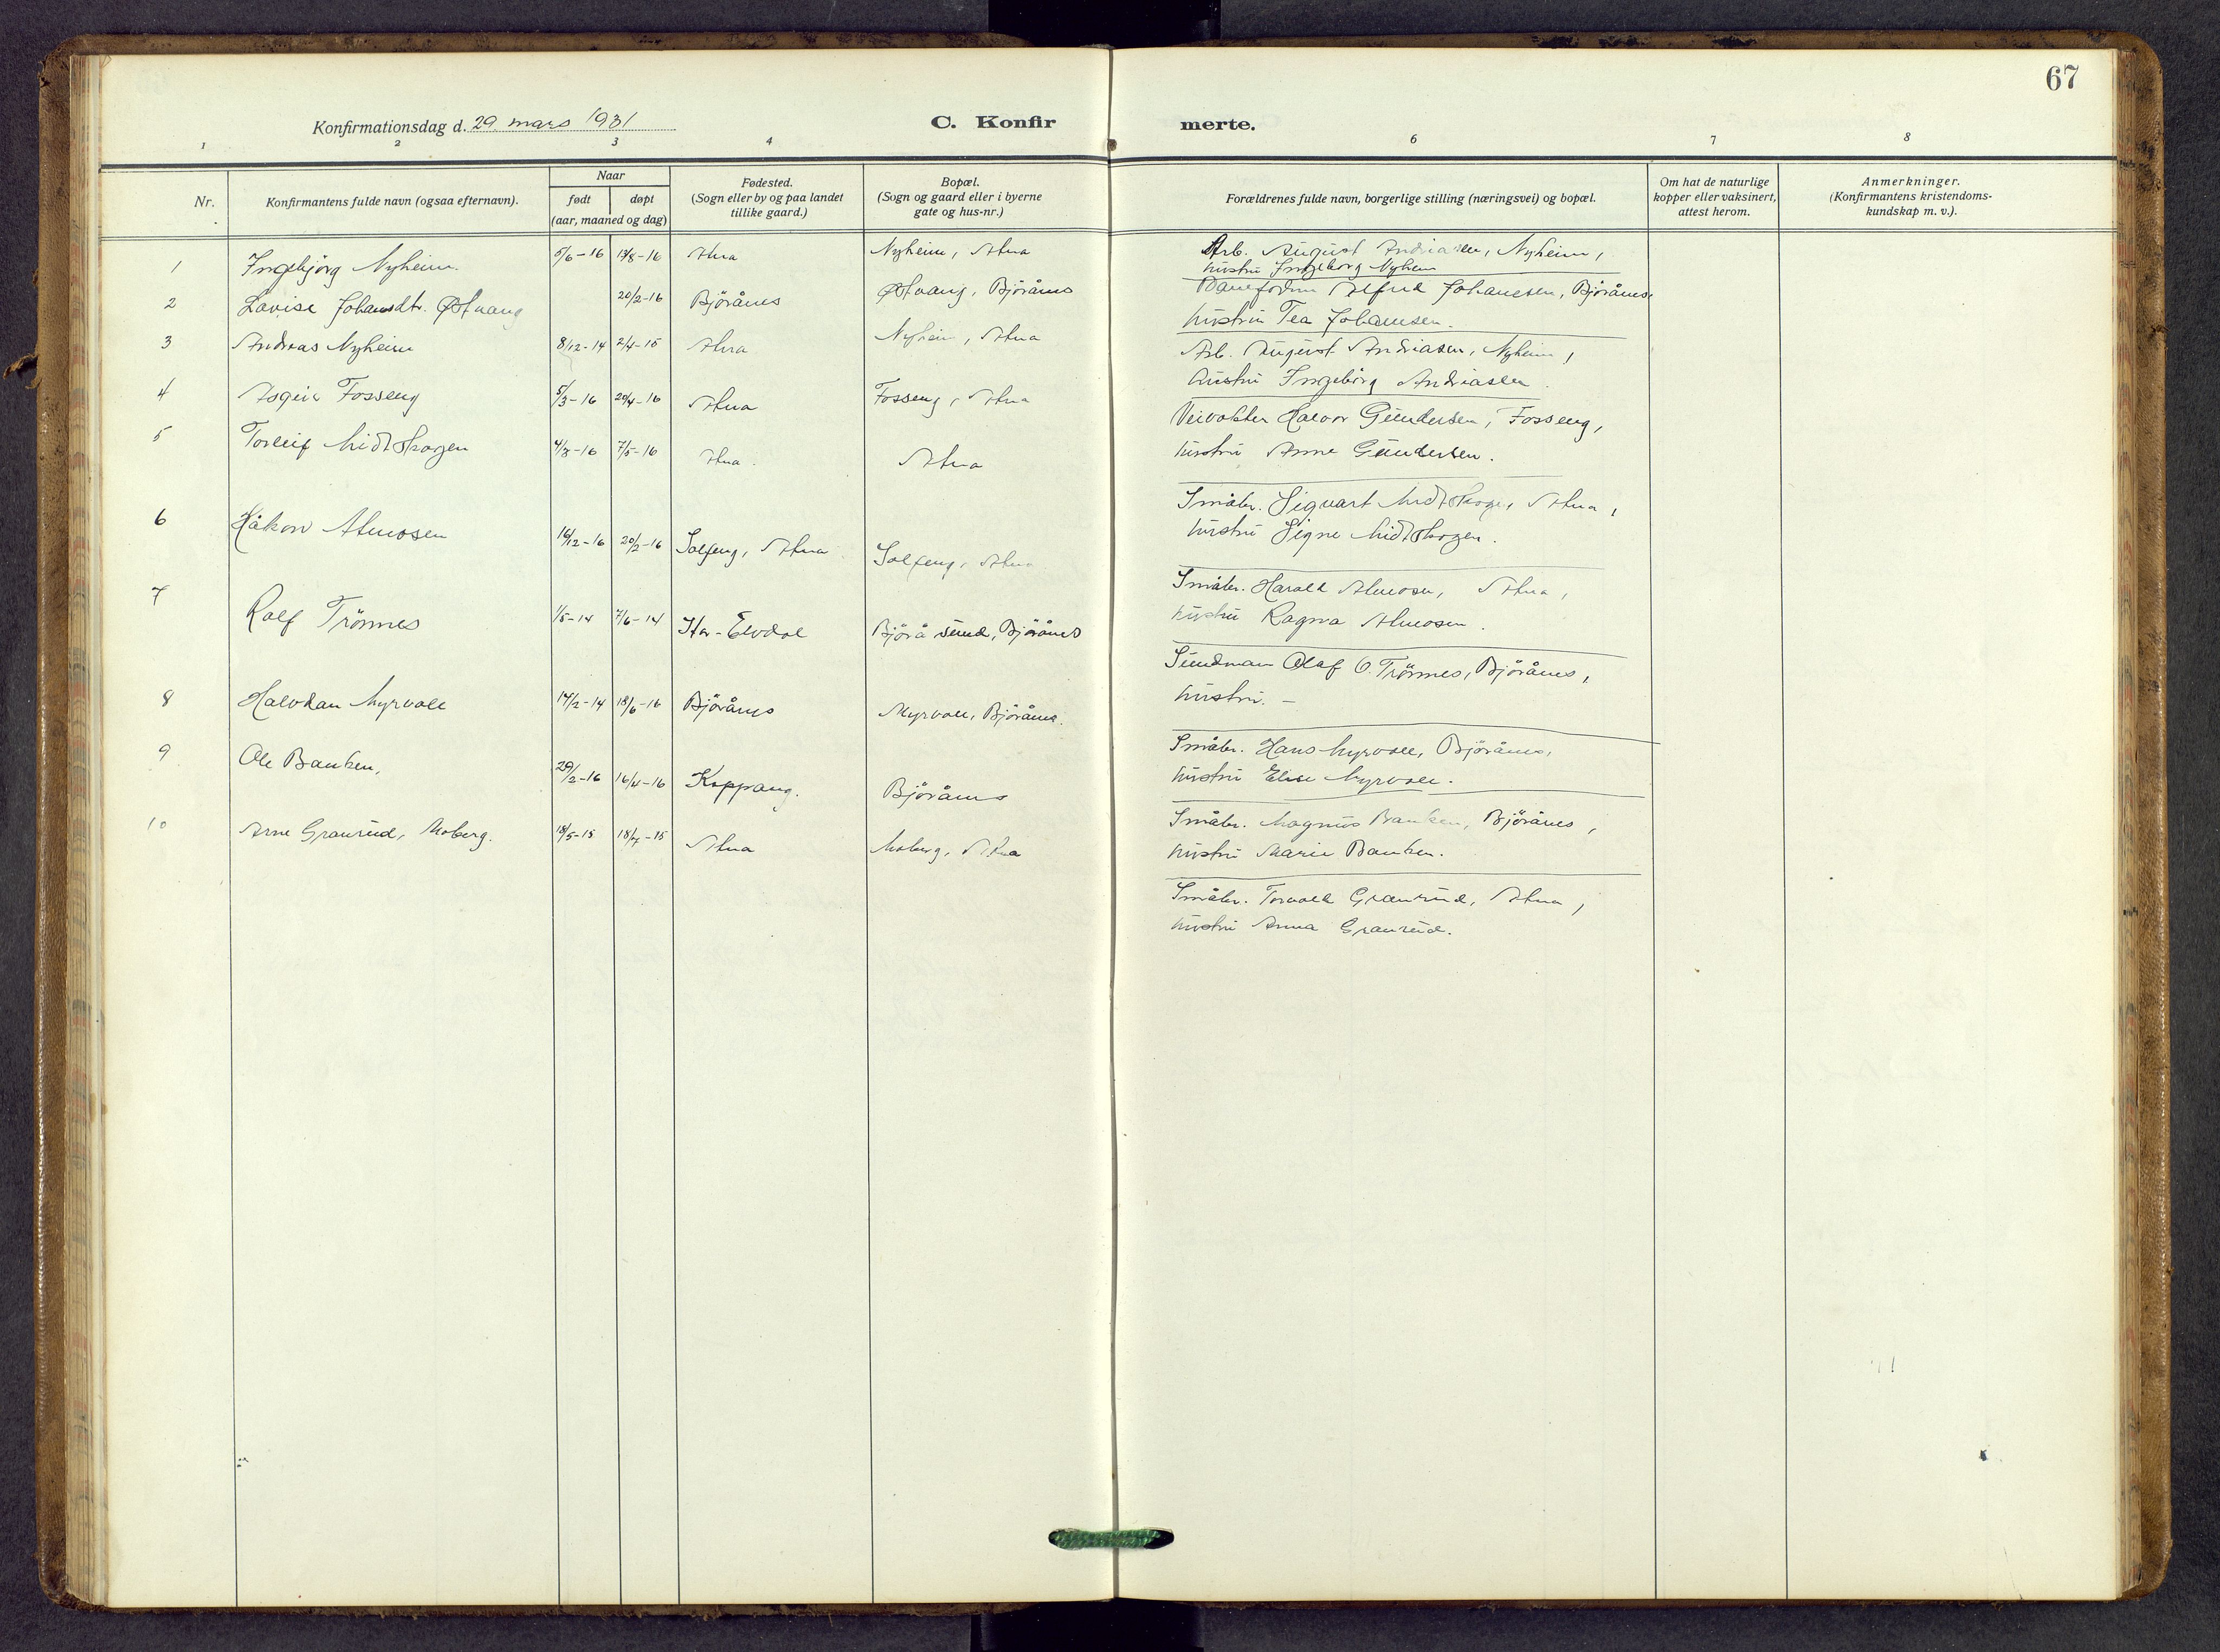 67
Konfirmationsdag d. 29. mars 1931
C. Konfir
merte.
1 2 3 4 6 7 8
Nr.
Konfirmantens fulde navn (ogsaa efternavn).
Naar
født døpt
(aar, maaned og dag)
Fødested.
(Sogn eller by og paa landet
tillike gaard.)
Bopæl.
(Sogn og gaard eller i byerne
gate og hus-nr.)
Forældrenes fulde navn, borgerlige stilling (næringsvei) og bopæl.
Om hat de naturlige
kopper eller vaksinert,
attest herom.
Anmerkninger.
(Konfirmantens kristendoms-
kundskap m. v.).
1 Ingebjörg Nyheim. 5/6-16 Atna Nyheim, Atna
Arb. August Andreasen, Nyheim,
hustru Ingeborg Nyheim
2 Lovise Johansdtr. Østvang 20/2-16 Björånes Østvang, Björånes
Baneformn Alfred Johansen, Björånes.
hustru Tea Johansen.
3 Andreas Nyheim 8/12-14 2/4-15 Atna Nyheim, Atna
Arb. August Andreasen, Nyheim,
hustru Ingeborg Andreasen.
4 Asgeir Fosseng 5/3-16 Atna Fosseng, Atna
Veivokter Halvor Gundersen, Fosseng,
hustru Anne Gundersen.
5 Torleif Midtskogen 7/5-16 Atna. Atna
Småbr. Sigvart Midtskogen, Atna,
hustru Signe Midtskogen.
6 Håkon Atneosen 16/12-16 20/2-16 Solfeng, Atna Solfeng, Atna
Småbr. Harald Atneosen, Atna,
hustru Ragna Atneosen.
7 Rolf Trönnes 1/5-14 7/6-14 Ytre-Elvdal Björåsund, Björånes
Sundman Olaf O. Trönnes, Björånes,
hustru. -
8 Halvdan Myrvoll 14/2-14 18/6-16 Björånes Myrvoll, Björånes.
Småbr. Hans Myrvoll, Björånes,
hustru Elise Myrvoll.
9 Ole Banken, 29/2-16 16/4-16 Koppang. Björånes
Småbr. Magnus Banken, Björånes,
hustru Marie Banken.
10 Arne Granrud, Moberg. 18/5-15 18/7-15 Atna Moberg, Atna
Småbr. Torvald Granrud, Atna,
hustru Anna Granrud.